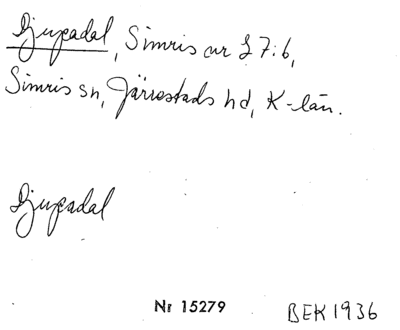 Djupadal, Simris nr 27:6,
Simris sn, Järrestads hd, K-län.
Djupadal
Nr 15279
BEK 1936